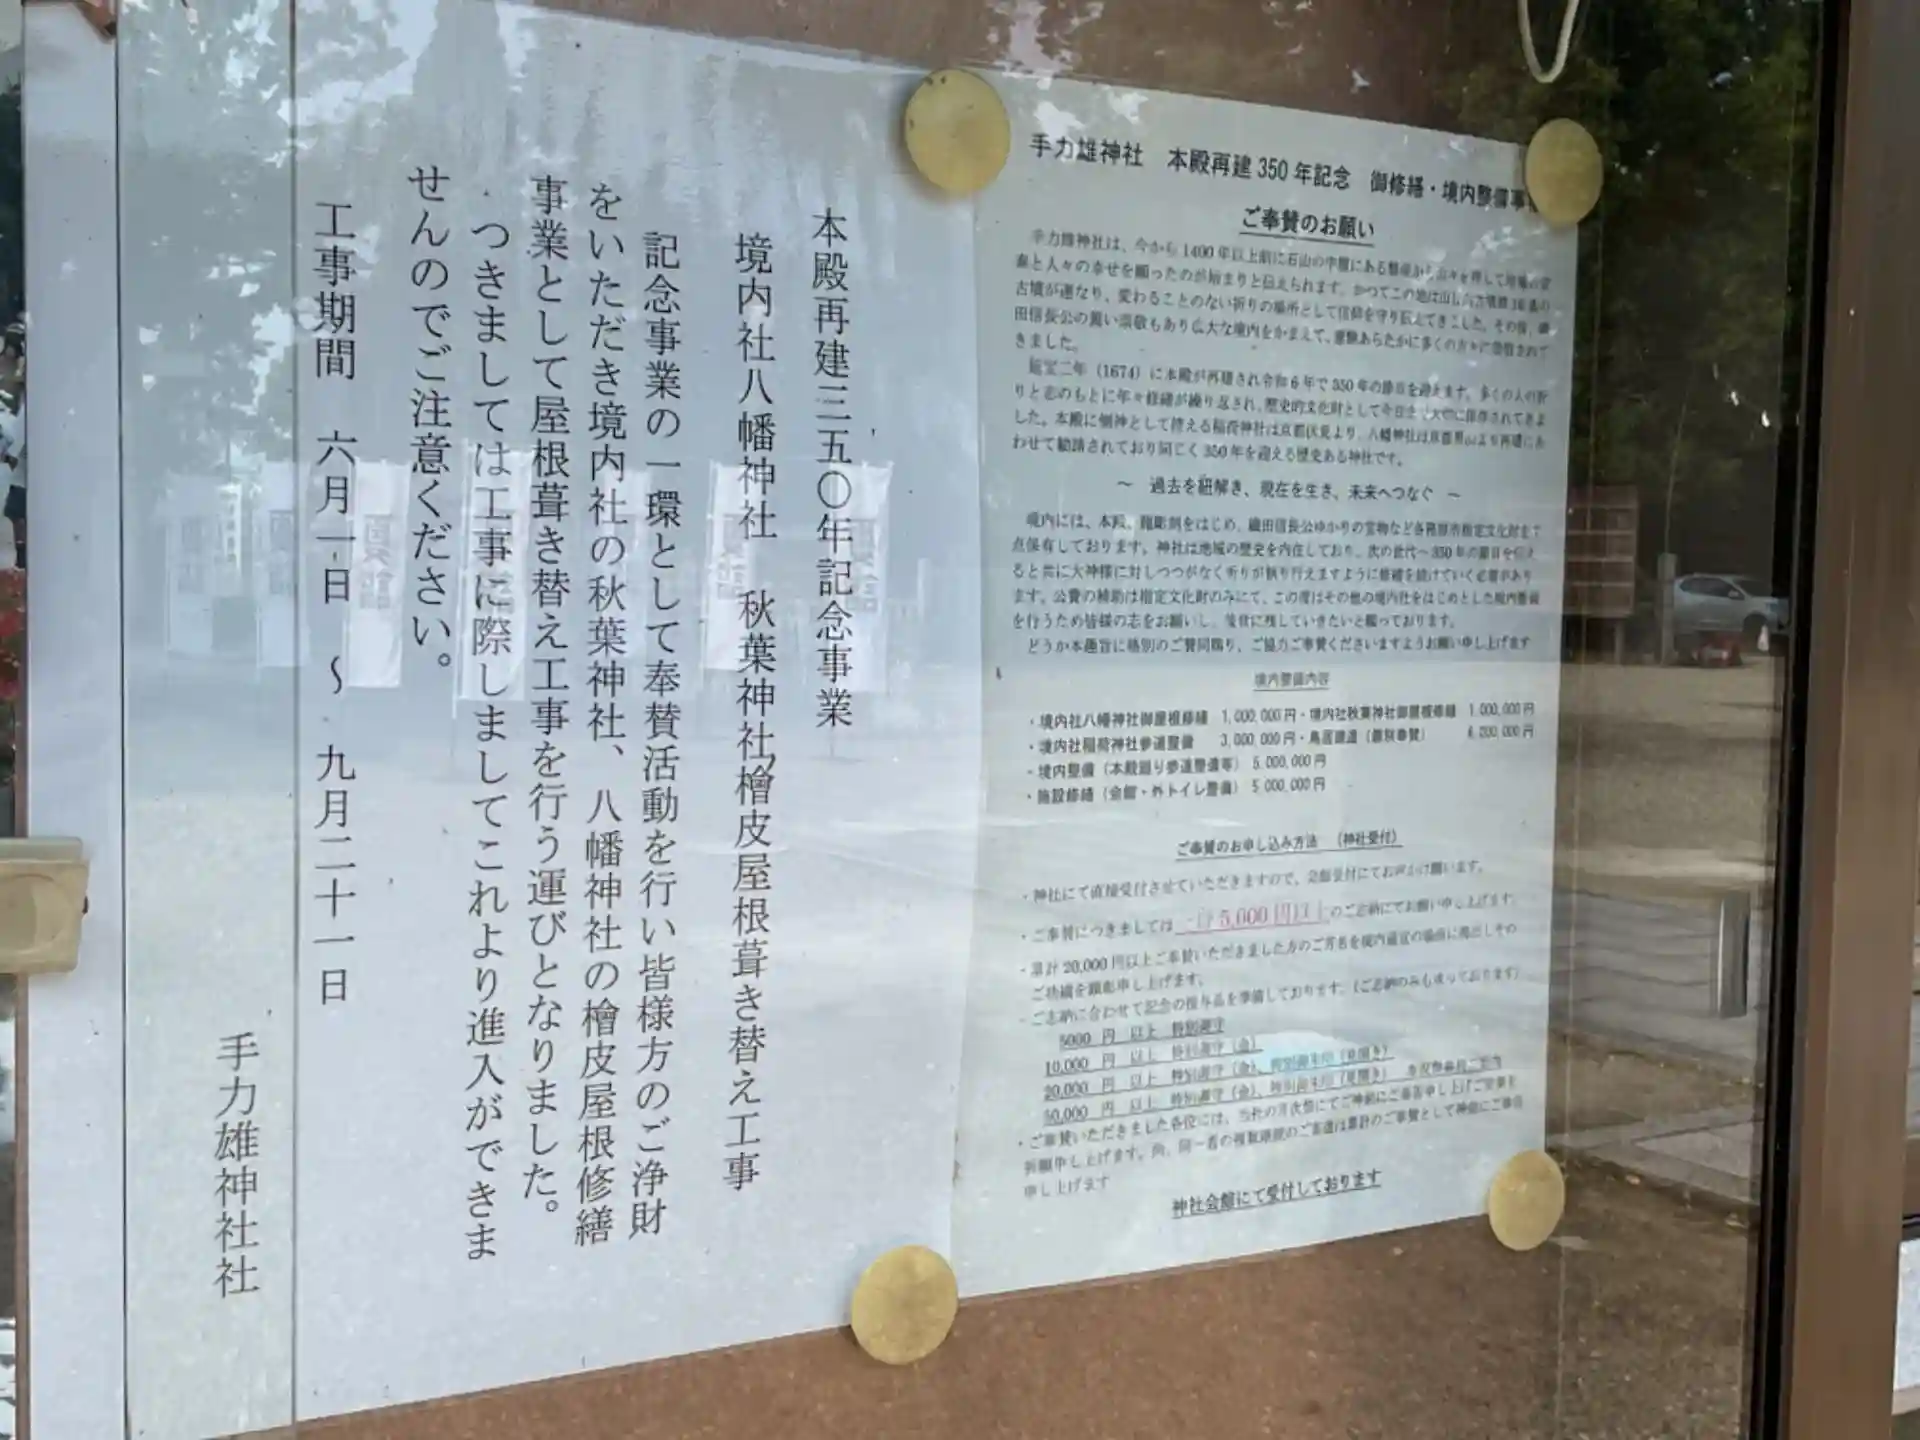 本殿再建三五〇年記念事業
境内社八幡神社 秋葉神社檜皮屋根葺き替え工事
記念事業の一環として奉賛活動を行い皆様方のご浄財
をいただき境内社の秋葉神社、八幡神社の檜皮屋根修繕
事業として屋根葺き替え工事を行う運びとなりました。
つきましては工事に際しましてこれより進入ができま
せんのでご注意ください。
工事期間 六月一日 ～ 九月二十一日
手力雄神社社
手力雄神社 本殿再建350年記念 御修繕・境内整備事
ご奉賛のお願い
手力雄神社は、今から1400年以上前に石山の中腹にある磐座から
と人々の幸せを願ったのが始まりと伝えられます。かつてこの地は
古墳が連なり、変わることのない祈りの場所として信仰を守り伝えてきました。その後、織
田信長公の篤い崇敬もあり広大な境内をかまえて、霊験あらたかに多くの方々に崇信されて
きました。
延宝二年（1674）に本殿が再建され令和6年で350年の節目を迎えます。多くの人の祈
りと志のもとに年々修繕が繰り返され、歴史的文化財として今日まで大切に保存されてきま
した。本殿に側神として控える稲荷神社は京都伏見より、八幡神社は京都男山より再建にあ
わせて勧請されており同じく350年を迎える歴史ある神社です。
～ 過去を紐解き、現在を生き、未来へつなぐ ～
境内には、本殿、龍彫刻をはじめ、織田信長公ゆかりの宝物など各務原市指定文化財を7
点保有しております。神社は地域の歴史を内在しており、次の世代へ350年の節目を伝え
ると共に大神様に対しつつがなく祈りが執り行えますように修繕を続けていく必要があり
ます。公費の補助は指定文化財のみにて、この度はその他の境内社をはじめとした境内整備
を行うため皆様の志をお願いし、後世に残していきたいと願っております。
どうか本趣旨に格別のご賛同賜り、ご協力ご奉賛くださいますようお願い申し上げます
境内整備内容
・境内社八幡神社御屋根修繕 1,000,000円・境内社秋葉神社御屋根修繕 1,000,000円
・境内社稲荷神社参道整備 3,000,000円・鳥居建造（ 奉賛） 6,200,000円
・境内整備（本殿廻り参道整備等） 5,000,000円
・施設修繕（会館・外トイレ整備） 5,000,000円
ご奉賛のお申し込み方法 （神社受付）
・神社にて直接受付させていただきますので、会館受付にてお声かけ願います。
・ご奉賛につきましては 一口5,000円以上のご志納にてお願い申し上げます。
・累計20,000円以上ご奉賛いただきました方のご芳名を境内 に掲出しその
ご持續を顕彰申し上げます。
・ご志納に合わせて記念の授与品を準備しております。（ご志納のみも承っております）
5000 円 以上 特別御守
10,000 円 以上 特別御守（金）
20,000 円 以上 特別御守（金）、特別御朱印（見開き）
50,000 円 以上 特別御守（金）、特別御朱印（見開き）
・ご奉賛いただきました各位には、当社の月次祭にてご神前にご奉告申し上げご安泰を
祈願申し上げます。尚、同一者の複数 のご奉賛は累計のご奉賛として神前にご奉告
申し上げます
神社会館にて受付しております